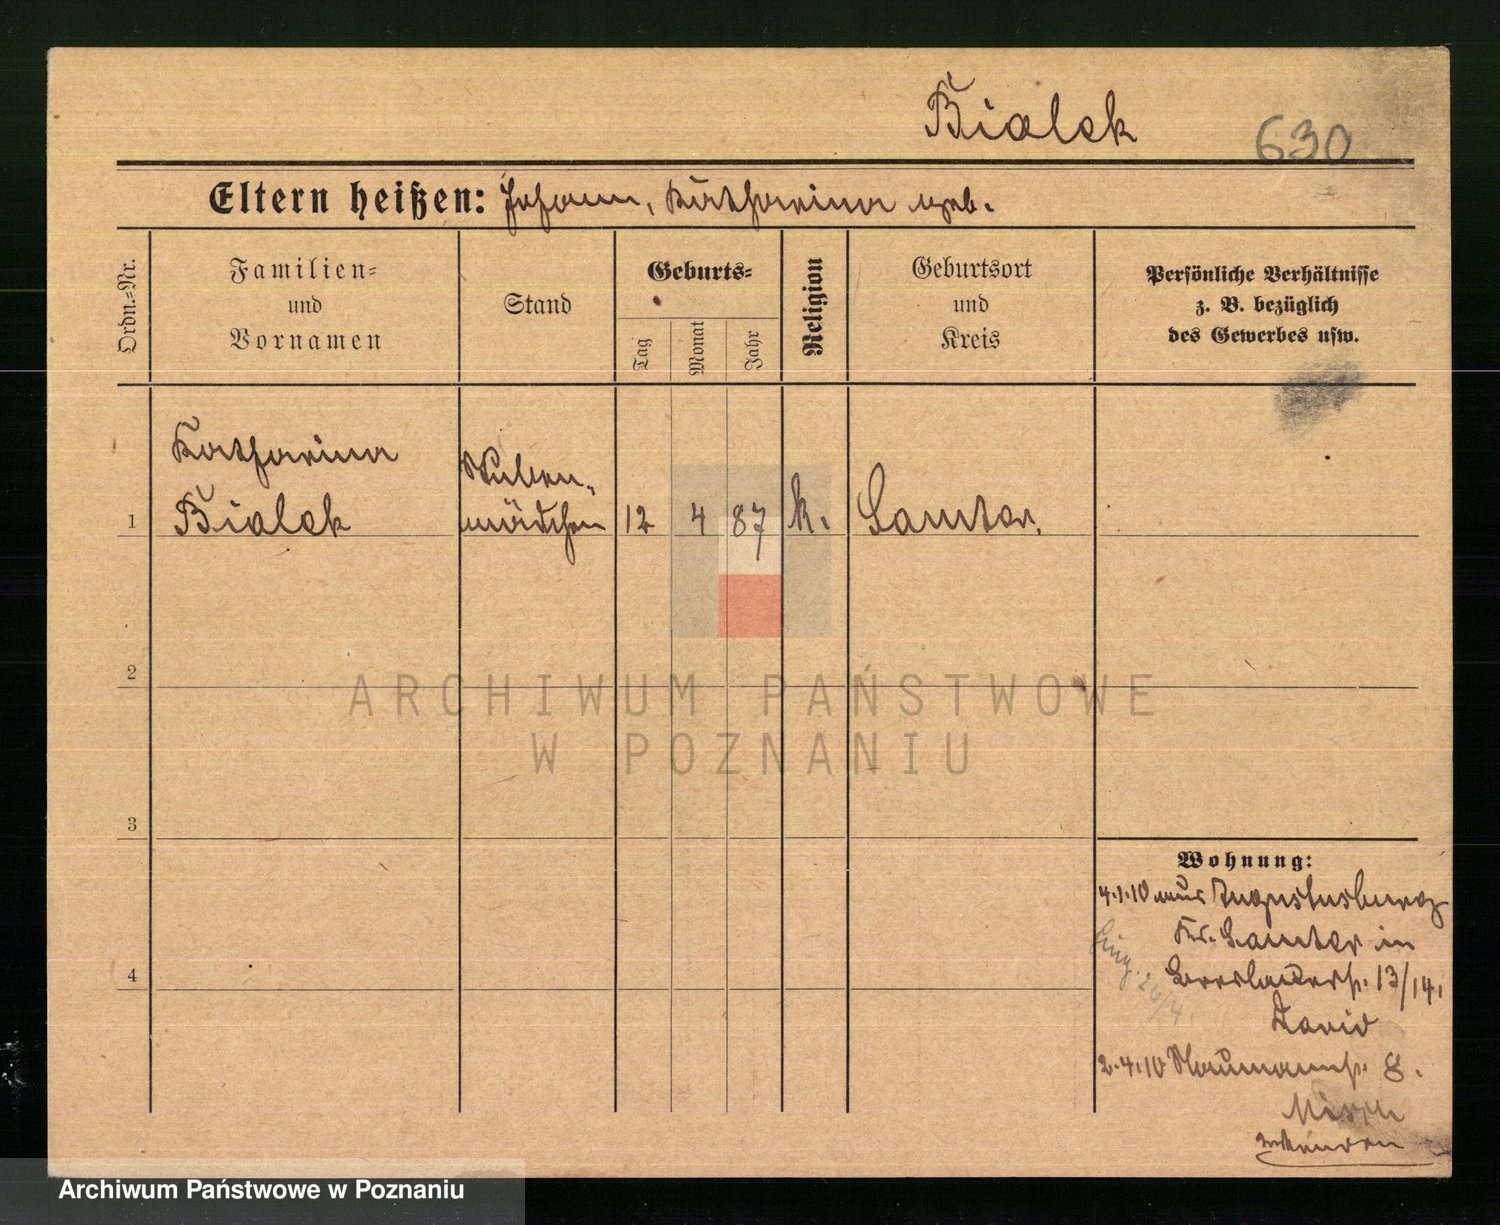 Bialek
630
Eltern heißen: Johann, Katharina geb.
Ordn.-Nr.
Familien-
und
Vornamen
Stand
Geburts-
Tag
Monat
Jahr
Religion
Geburtsort
und
Kreis
Persönliche Verhältnisse
z. B. bezüglich
des Gewerbes usw.
Katharina
Stuben-
1 Bialek mädchen 12 4 87 k. Samter.
2
ARCHIWUM PAŃSTWOWE
W POZNANIU
3
Wohnung:
4.1.10 aus Augustusburg
Kr. Samter in
4
13/14,
David
2.4.10 Naumannst. 8.
Archiwum Państwowe w Poznaniu